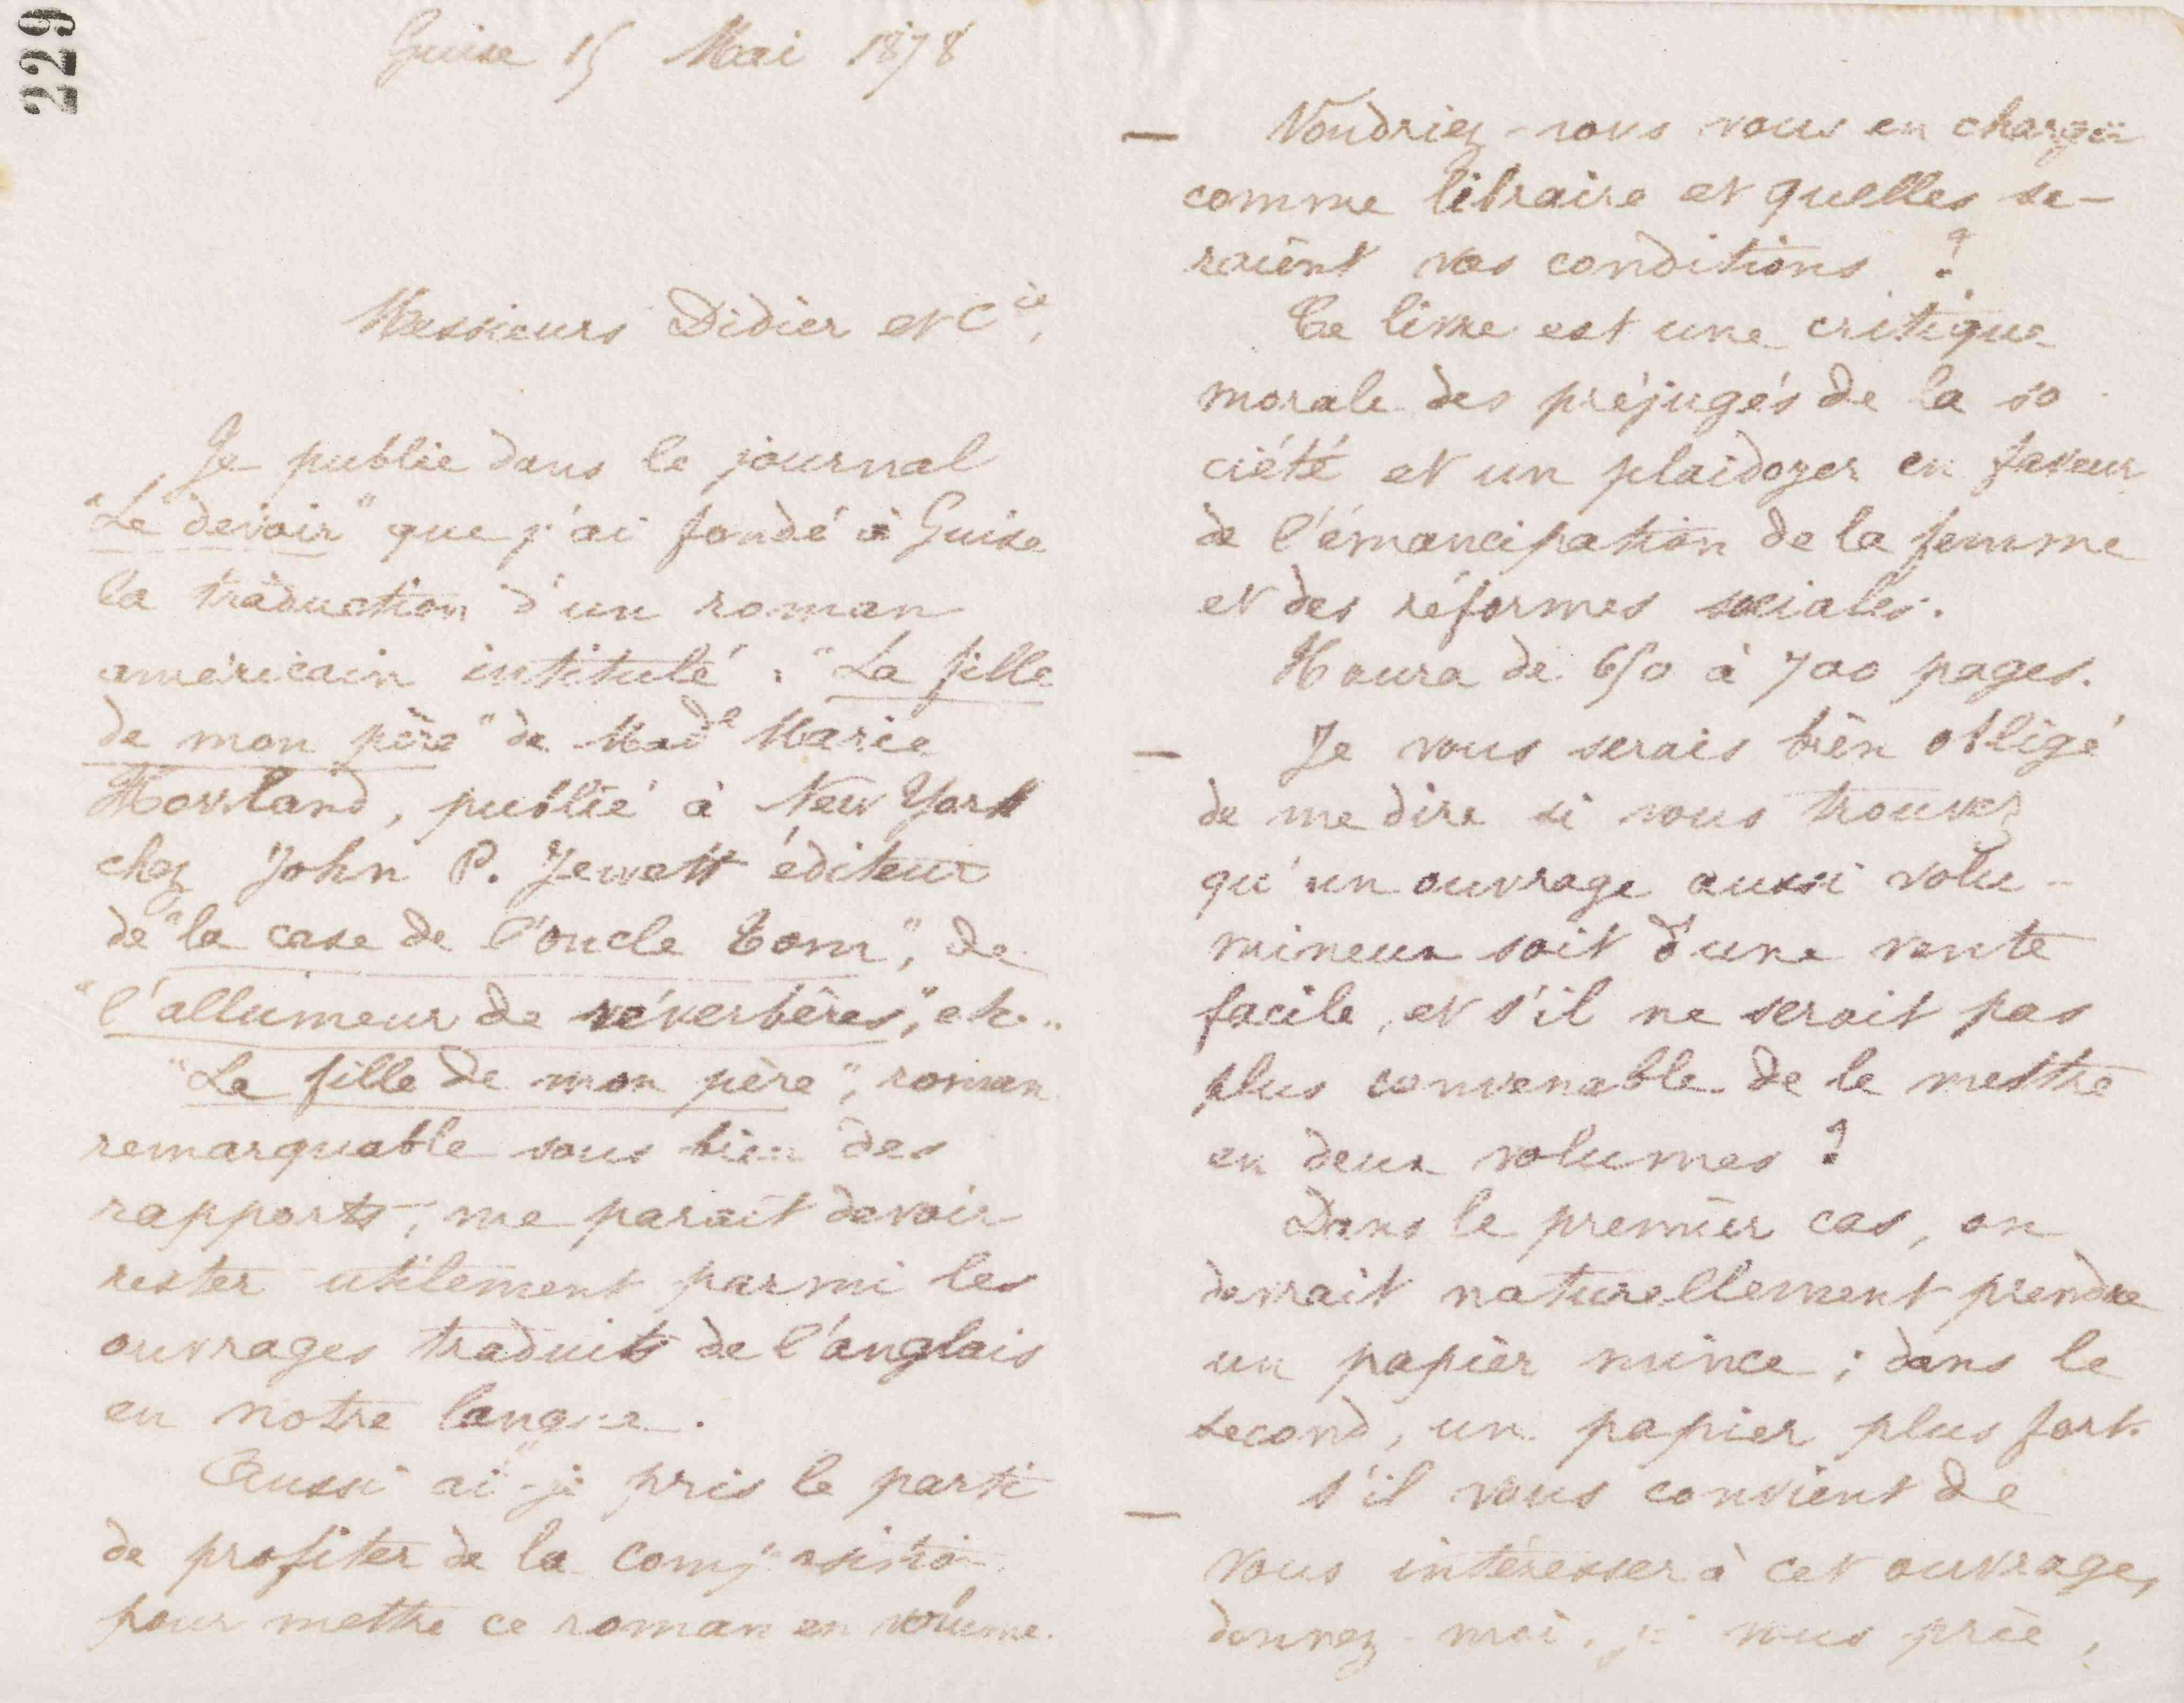 229
Guise 15 Mai 1878
Messieurs Didier et Cie,
Je publie dans le journal
"Le devoir" que j'ai fondé à Guise
la traduction d'un roman
américain intitulé : "La fille
de mon père" de Made Marie
Howland, publié à New York
chez John P. Jewett éditeur
de "la case de l'oncle Tom", de
"l'allumeur de réverbères", etc..
"La fille de mon père", roman
remarquable sous bien des
rapports, me paraît devoir
rester utilement parmi les
ouvrages traduits de l'anglais
en notre langue.
Aussi ai-je pris le parti
de profiter de la composition
pour mettre ce roman en volume.
— Voudriez-vous vous en charger
comme libraire et quelles se-
raient vos conditions ?
Ce livre est une critique
morale des préjugés de la so
ciété et un plaidoyer en faveur
de l'émancipation de la femme
et des réformes sociales.
Il aura de 650 à 700 pages.
— Je vous serais bien obligé
de me dire si vous trouvez
qu'un ouvrage aussi volu-
mineux soit d'une vente
facile, et s'il ne serait pas
plus convenable de le mettre
en deux volumes ?
Dans le premier cas, on
devrait naturellement prendre
un papier mince ; dans le
second, un papier plus fort.
— S'il vous convient de
vous intéresser à cet ouvrage,
donnez-moi, je vous prie,